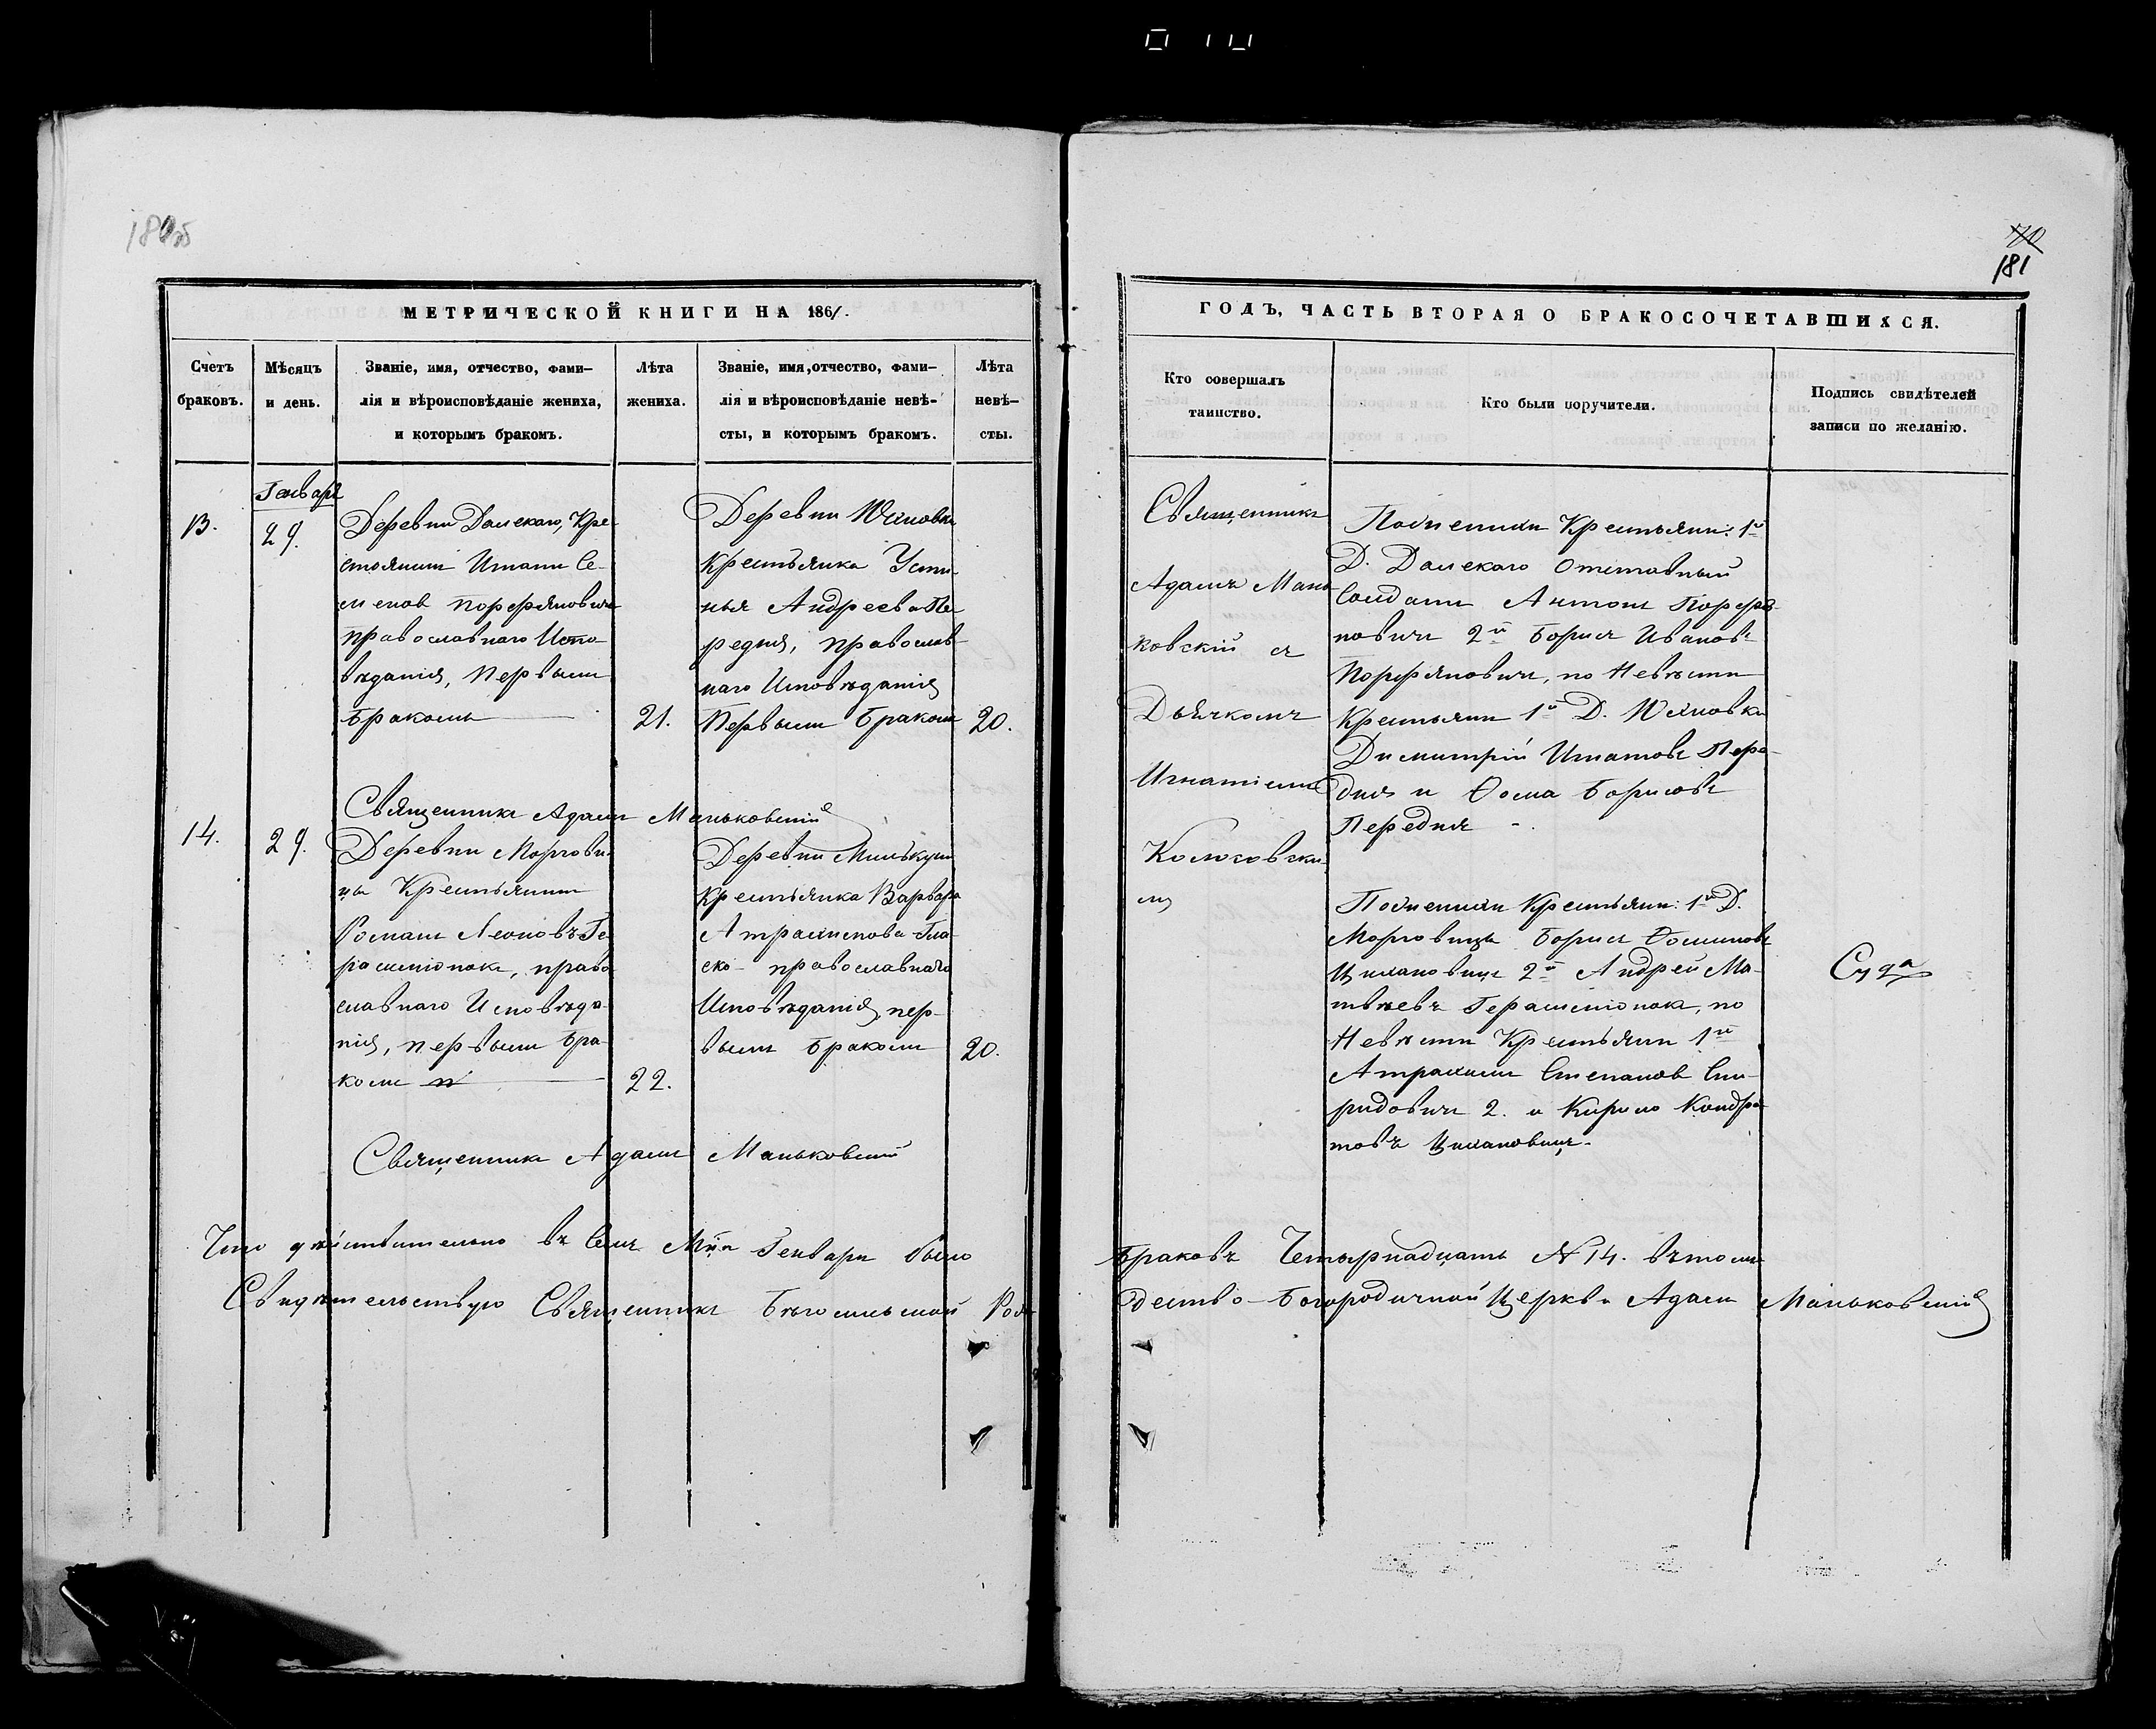 181
МЕТРИЧЕСКОЙ КНИГИ НА 1861.
Счетъ браковъ.
Мѣсяцъ и день.
Званіе, имя, отчество, фами-
лія и вѣроисповѣданіе жениха,
и которымъ бракомъ.
Лѣта жениха.
Званіе, имя, отчество, фами-
лія и вѣроисповѣданіе невѣ-
сты, и которымъ бракомъ.
Лѣта невѣ-
сты.
Генваря
13.
29.
Деревни Домскаго, Кре-
стоянинъ Игнатій Се-
меновъ Порфяновичъ
православнаго Испо-
вѣданія, Первымъ
бракомъ
21.
Деревни
Крестьянка Усти-
нья Андреева Пе-
редня, православ-
наго Исповѣданія
Первымъ бракомъ
20.
Священникъ Адамъ Маньковскій
14.
29.
Деревни Моргови-
цы Крестьянинъ
Романъ Леоновъ Ге-
расименокъ, право-
славнаго Исповѣда-
нія, первымъ бра-
комъ
22.
Деревни Милькуны
Крестьянка Варвара
Атрахимова
православнаго
Исповѣданія, пер-
вымъ бракомъ
20.
Священникъ Адамъ Маньковскій
Что дѣйствительно въ семъ Мцѣ Генварѣ было
Свидѣтельствую Священникъ Рож-
ГОДЪ, ЧАСТЬ ВТОРАЯ О БРАКОСОЧЕТАВШИХСЯ.
Кто совершалъ
таинство.
Кто были поручители.
Подпись свидѣтелей
записи по желанію.
Священникъ
Адамъ Мань-
ковскій съ
Дьячкомъ
Игнатіемъ
По женихѣ Крестьяни: 1й
Д. Домскаго Отставный
Солдатъ Антонъ Порфя-
новичъ 2й Борисъ Ивановъ
Порфяновичъ, по Невѣсти
Крестьяни 1й Д.
Димитрій Игнатовъ Пере-
дня и Ѳома Борисовъ
Передня
По женихѣ Крестьяни: 1й Д.
Морговицы Борисъ Ѳоминовъ
Цихановичъ 2й Андрей Ма-
твѣевъ Герасименокъ, по
Невѣсти Крестьяни 1й
Атрахимъ Степановъ Спи-
ридовичъ 2. и Кирило Кондра-
товъ Цихановичъ.
браковъ Четырнадцать N 14. въ томъ
дество-Богородичной Церкви Адамъ Маньковскій